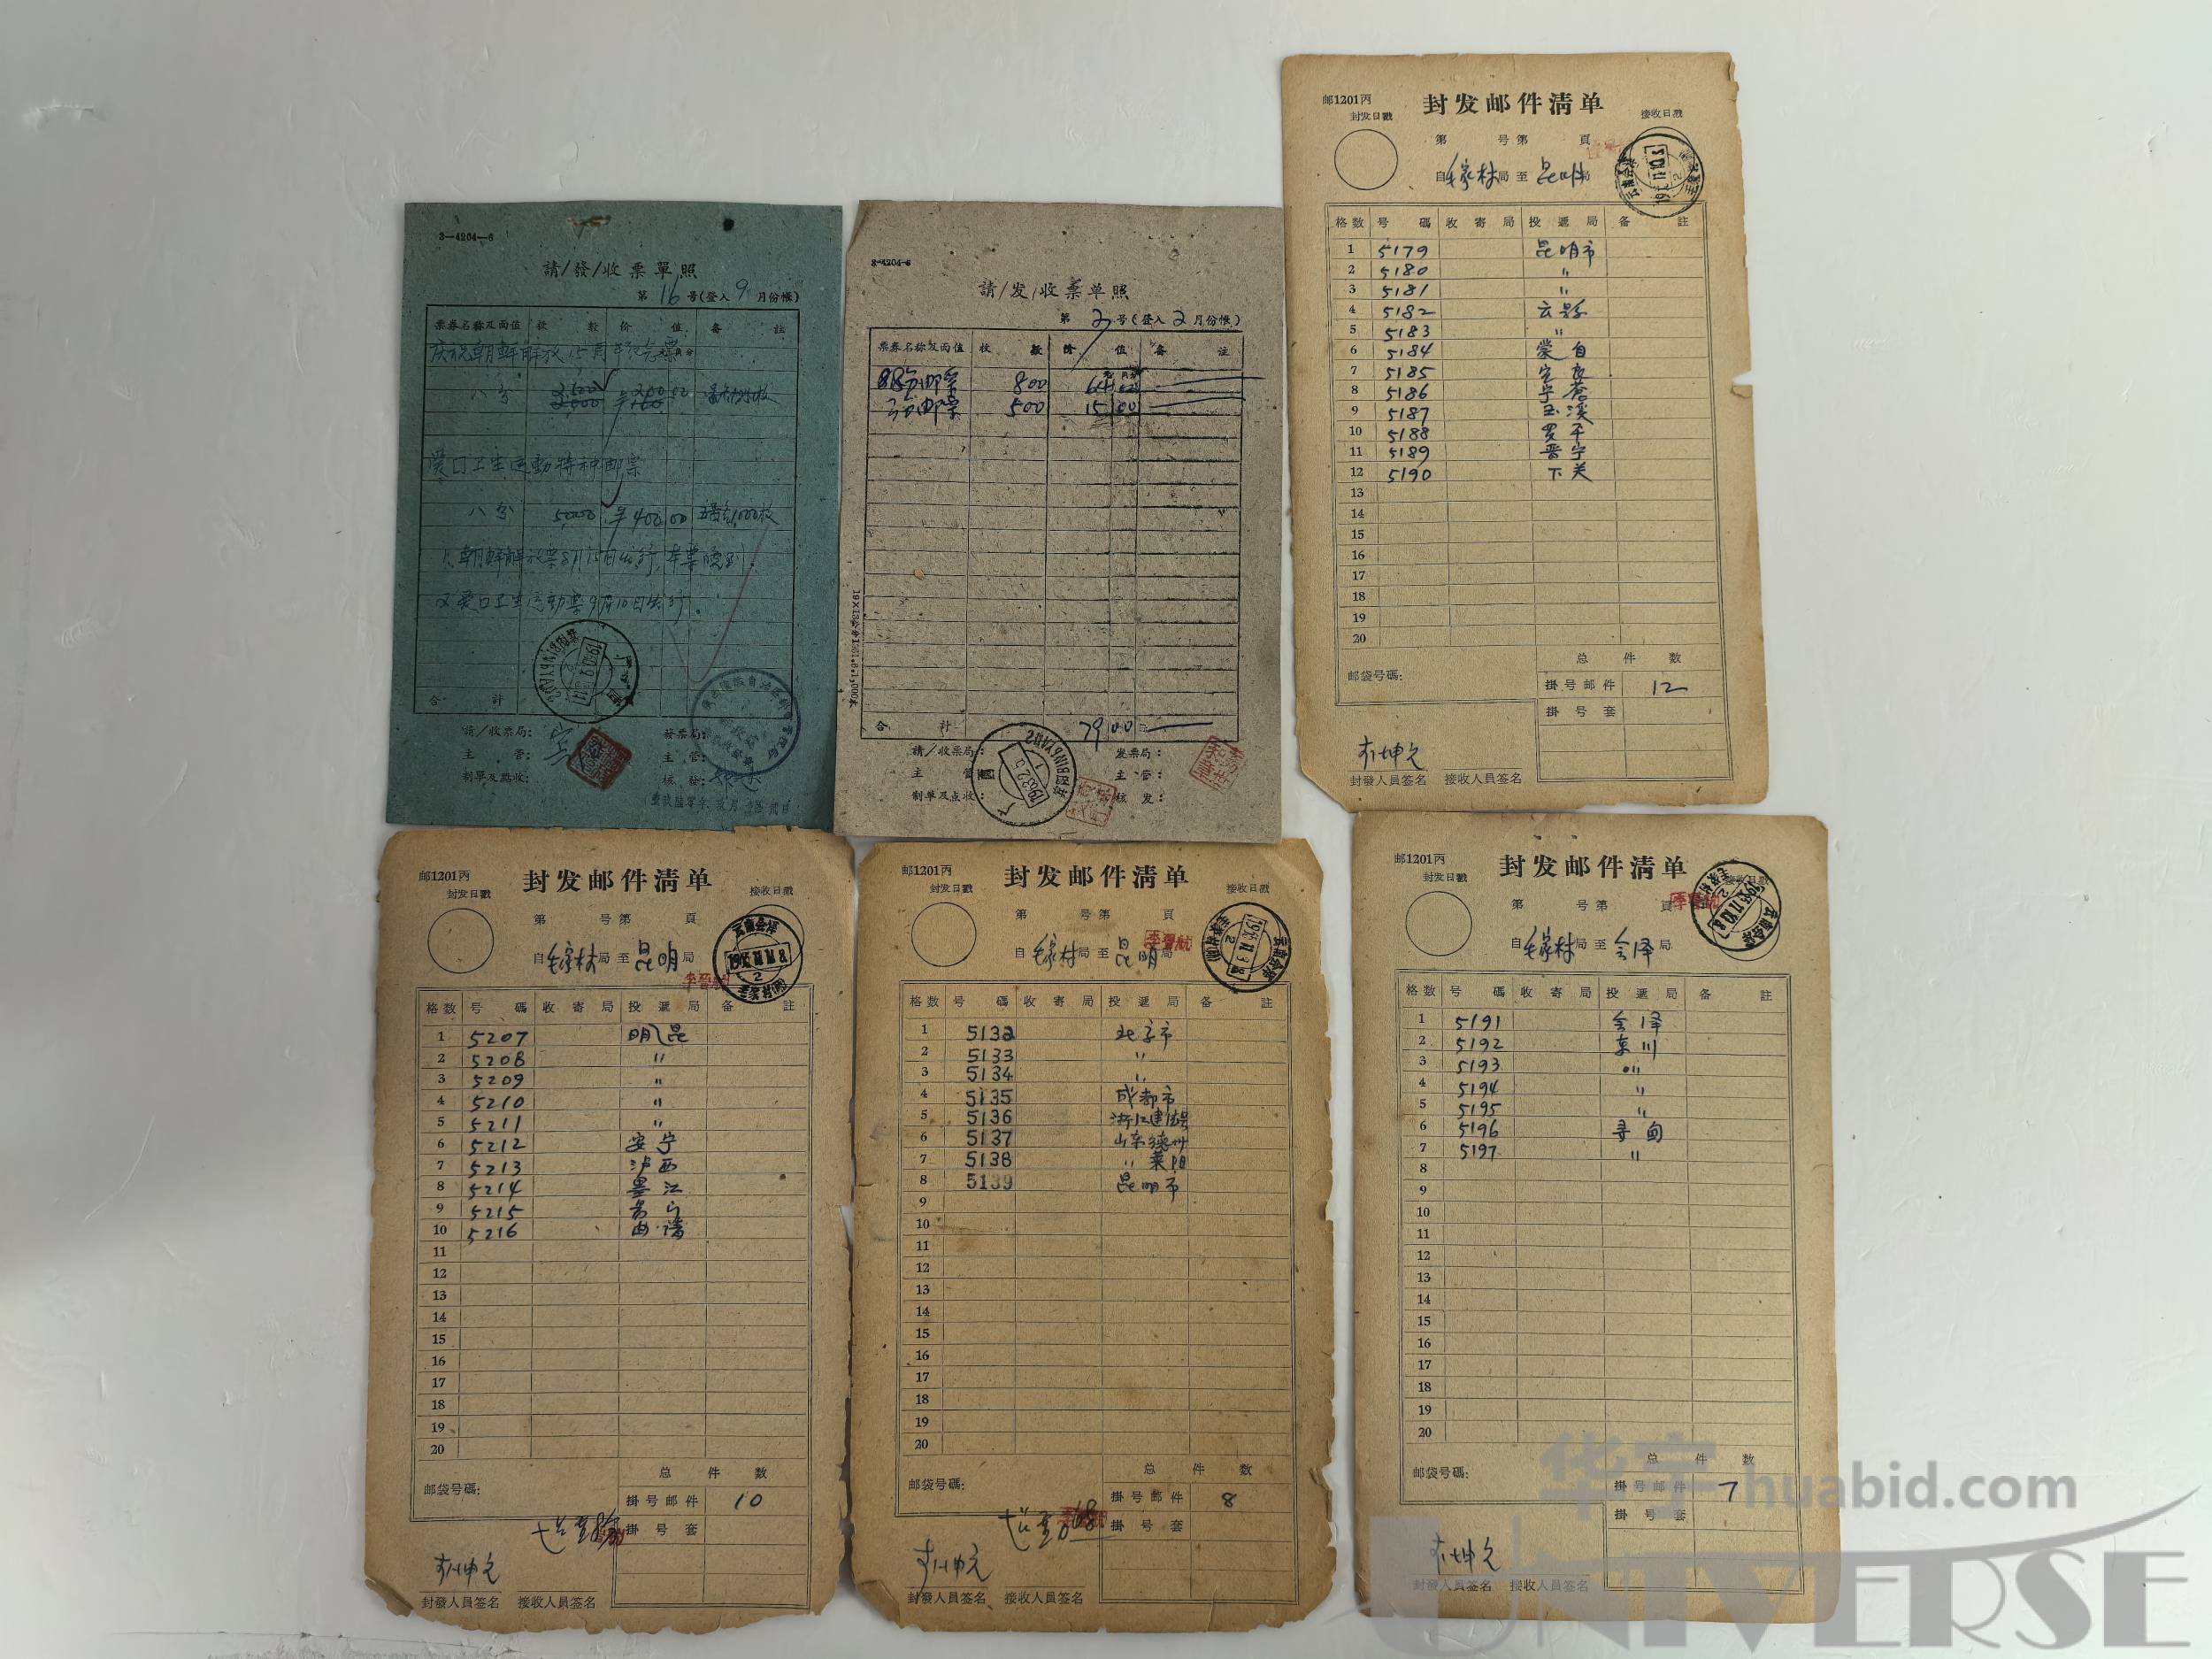 3—4204—6
請/發/收票單照
第 16 号(登入 9 月份帳)
票券名称及面值 枚 數 价 值 备 註
庆祝朝鲜解放15周年纪念票
八分
爱国卫生运动特种邮票
八分 5000 半400 00
1.朝鲜解放票8月15日出紗,本票晚到.
又爱国卫生运动票9月10日出紗.
合 計
請/收票局: 發票局:
主 管: 主 管:
制單及點收: 核 發:
3-4204-6
請/发/收票单照
第 2 号(登入 2 月份帳)
票券名称及面值 枚 數 价 值 备 注
8分邮票 800 64 00
3分邮票 500 15 00
合 計 79 00
請/收票局: 发票局:
主 管 主 管:
制单及点收: 核 发:
邮1201丙 封发邮件清单
封发日戳 接收日戳
第 号第 頁
自 毛家村 局 至 昆明 局
格数 号 碼 收 寄 局 投 遞 局 备 註
1 5179 昆明市
2 5180 〃
3 5181 〃
4 5182 云县
5 5183 〃
6 5184 蒙自
7 5185 宜良
8 5186 宁蒗
9 5187 玉溪
10 5188 罗平
11 5189 晋宁
12 5190 下关
13
14
15
16
17
18
19
20
总 件 数
邮袋号碼:
掛号邮件 12
掛 号 套
封發人員签名 接收人員签名
邮1201丙 封发邮件清单
封发日戳 接收日戳
第 号第 頁
自 毛家村 局 至 昆明 局
格数 号 碼 收 寄 局 投 遞 局 备 註
1 5207 明昆
2 5208 〃
3 5209 〃
4 5210 〃
5 5211 〃
6 5212 安宁
7 5213 泸西
8 5214 墨江
9 5215
10 5216 曲靖
11
12
13
14
15
16
17
18
19
20
总 件 数
邮袋号碼:
掛号邮件 10
掛 号 套
封發人員签名 接收人員签名
邮1201丙 封发邮件清单
封发日戳 接收日戳
第 号第 頁
自 毛家村 局 至 昆明 局
格数 号 碼 收 寄 局 投 遞 局 备 註
1 5132 北京市
2 5133 〃
3 5134 〃
4 5135 成都市
5 5136 浙江建德县
6 5137 山东德州
7 5138 〃 莱阳
8 5139 昆明市
9
10
11
12
13
14
15
16
17
18
19
20
总 件 数
邮袋号碼:
掛号邮件 8
掛 号 套
封發人員签名 接收人員签名
邮1201丙 封发邮件清单
封发日戳 接收日戳
第 号第 頁
自 毛家村 局 至 会泽 局
格数 号 碼 收 寄 局 投 遞 局 备 註
1 5191 会泽
2 5192 东川
3 5193 〃
4 5194 〃
5 5195 〃
6 5196 寻甸
7 5197 〃
8
9
10
11
12
13
14
15
16
17
18
19
20
总 件 数
邮袋号碼:
掛号邮件 7
掛 号 套
封發人員签名 接收人員签名
华宇 huabid.com
UNIVERSE